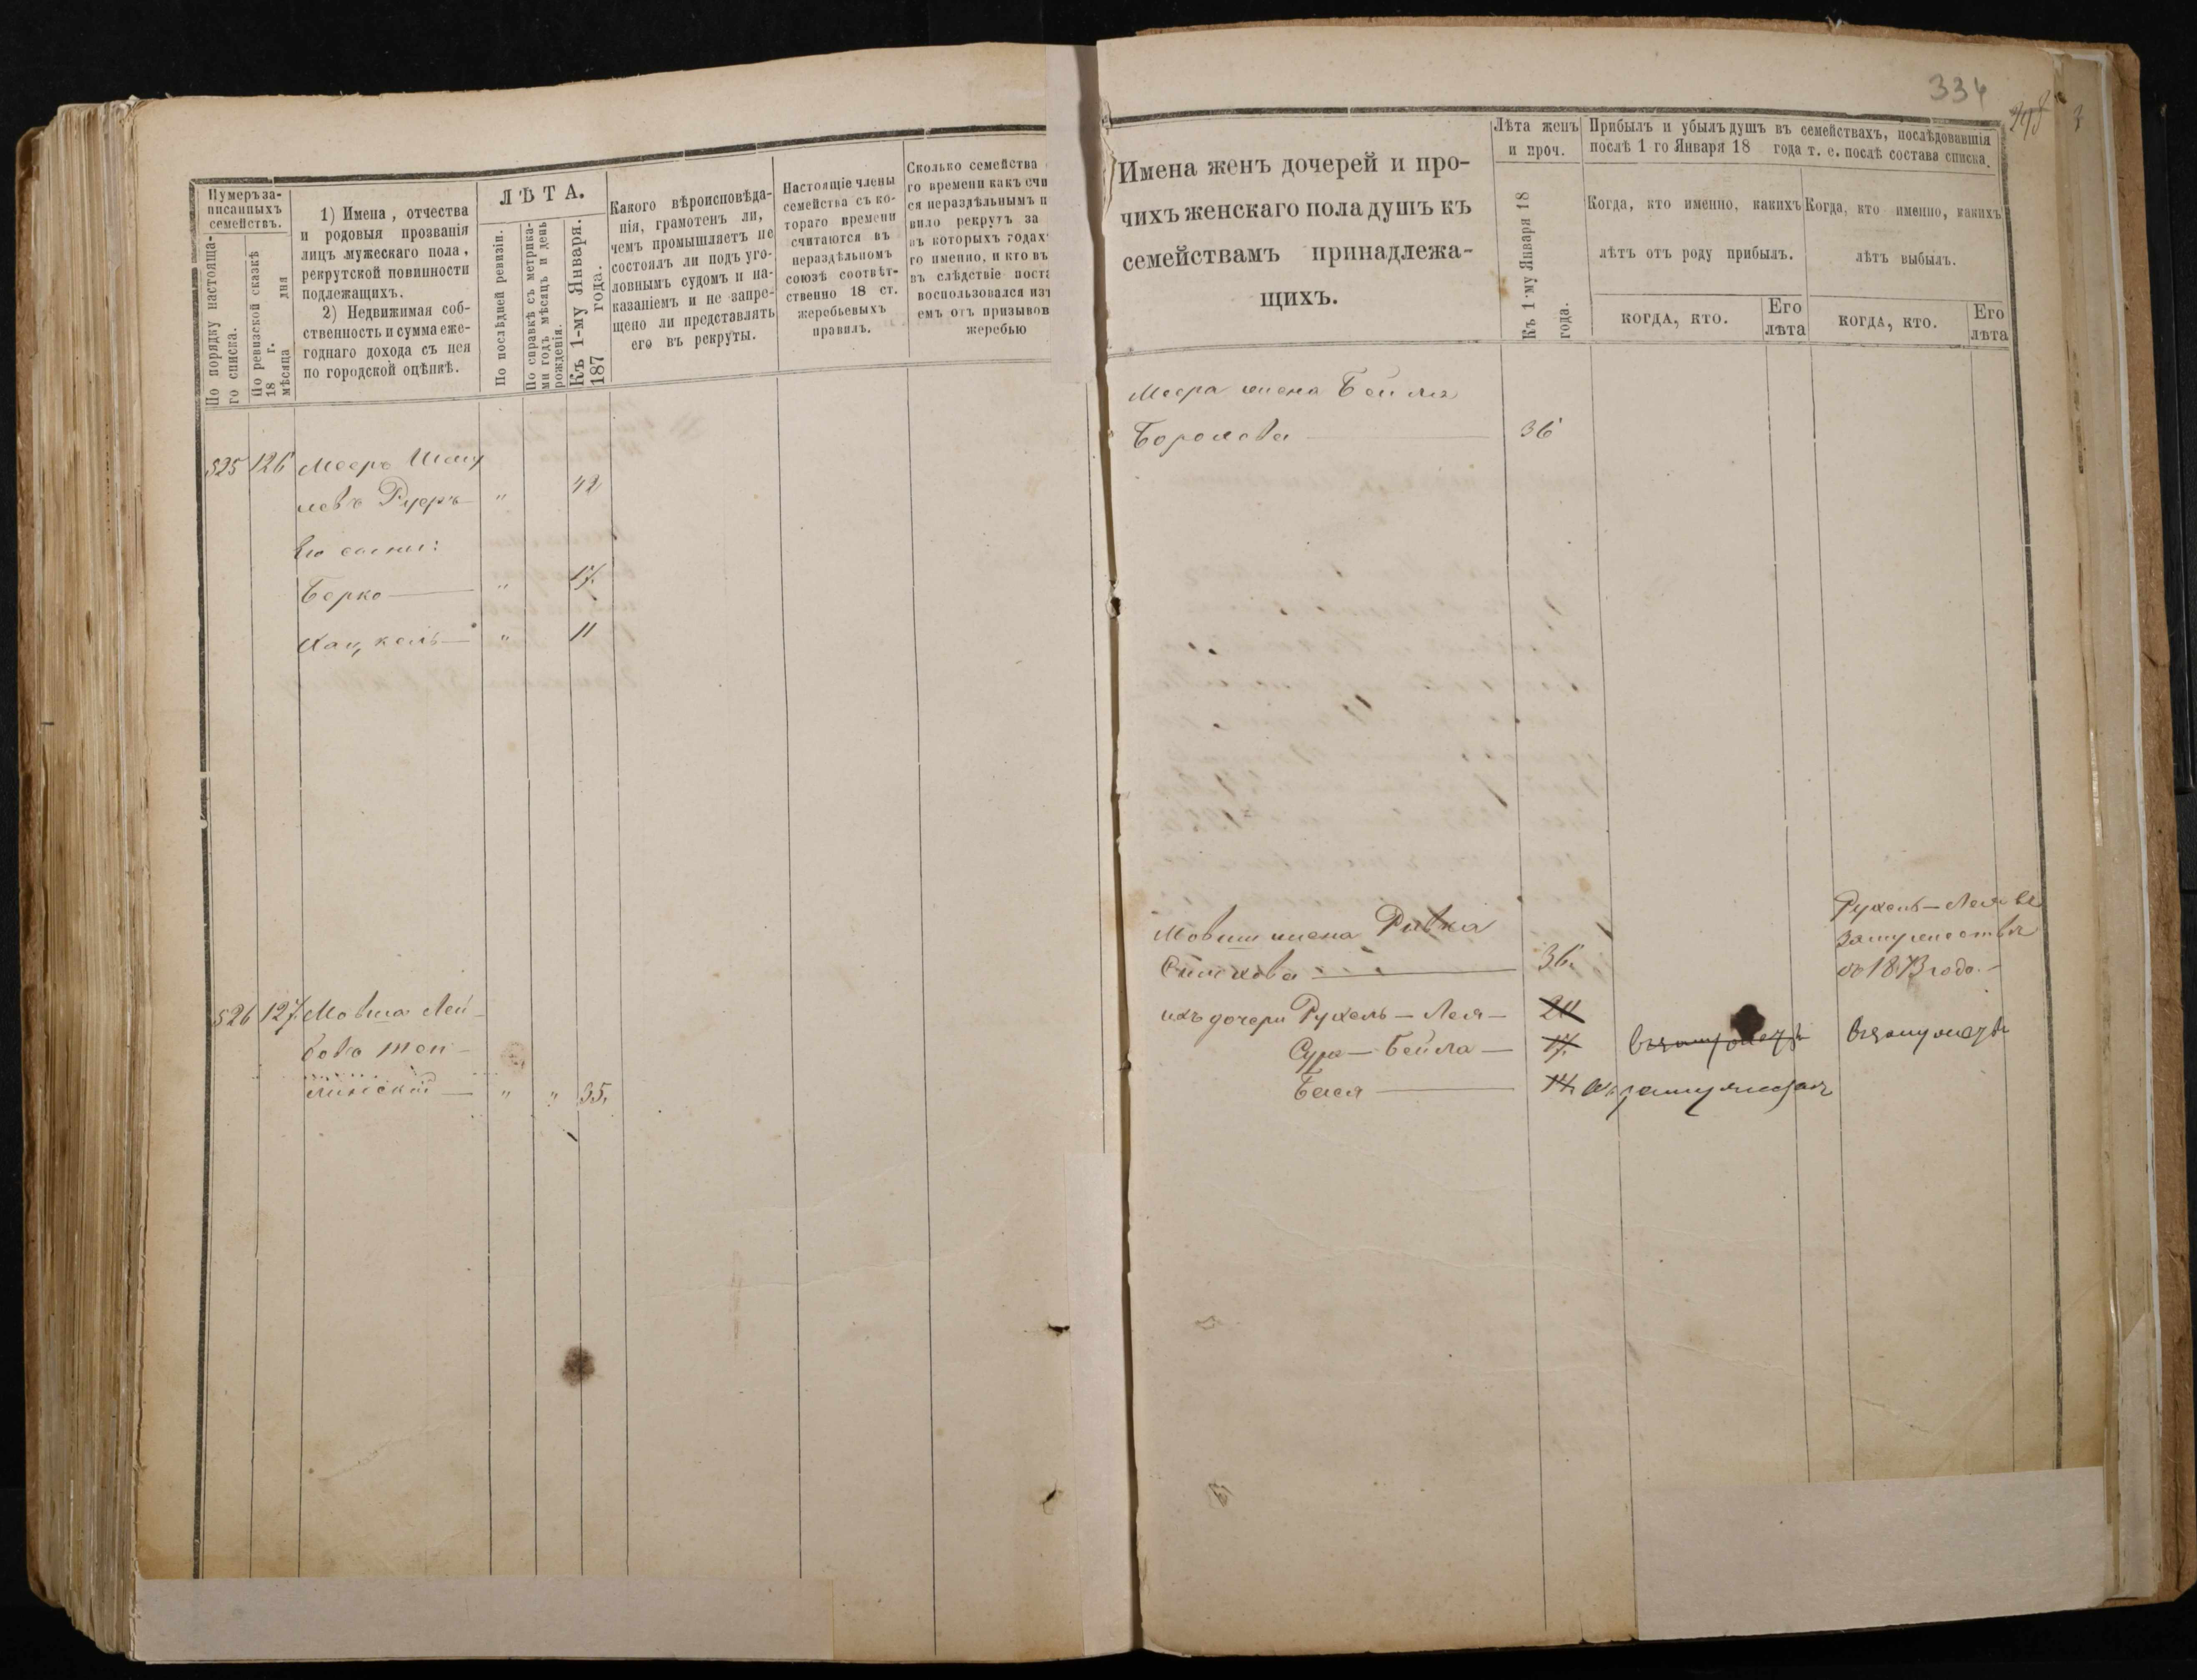 Нумеръ за-
писанныхъ
семействъ.
По порядку настояща-
го списка.
По ревизской сказкѣ
18 г.
мѣсяца дня
1) Имена, отчества
и родовыя прозванія
лицъ мужескаго пола,
рекрутской повинности
подлежащихъ.
2) Недвижимая соб-
ственность и сумма еже-
годнаго дохода съ нея
по городской оцѣнкѣ.
ЛѢТА.
По послѣдней ревизіи.
По справкѣ съ метрика-
ми годъ мѣсяцъ и день
рожденія.
Къ 1-му Января.
187 года.
Какого вѣроисповѣда-
нія, грамотенъ ли,
чемъ промышляетъ не
состоялъ ли подъ уго-
ловнымъ судомъ и на-
казаніемъ и не запре-
щено ли представлять
его въ рекруты.
Настоящіе члены
семейства съ ко-
тораго времени
считаются въ
нераздѣльномъ
союзѣ соотвѣт-
ственно 18 ст.
жеребьевыхъ
правилъ.
Сколько семейства
го времени какъ счи
ся нераздѣльнымъ п
вило рекрутъ за
въ которыхъ годах
го именно, и кто въ
въ слѣдствіе поста
воспользовался из
емъ отъ призывов
жеребью
525 126 Мееръ Шму
левъ Руеръ " 42
Его сыны:
Берко " 17.
Хацкель " 11
526 127. Мовша Лей-
бовъ Теп-
лински " " 35.
334
Имена женъ дочерей и про-
чихъ женскаго пола душъ къ
семействамъ принадлежа-
щихъ.
Лѣта женъ
и проч.
Къ 1-му Января 18
года.
Прибыль и убыль душъ въ семействахъ, послѣдовавшія
послѣ 1 го Января 18 года т. е. послѣ состава списка.
Когда, кто именно, какихъ
лѣтъ отъ роду прибылъ.
Когда, кто именно, какихъ
лѣтъ выбылъ.
КОГДА, КТО.
Его
лѣта
КОГДА, КТО.
Его
лѣта
Меера жена Бейла
Борохова 36
Мовши жена Ривка
36.
ихъ дочери Рухель-Лея 20
Сура-Бейла 17.
Бася 14.
Рухель-Лея въ
замужествѣ
съ 1873 года.
въ замужествѣ